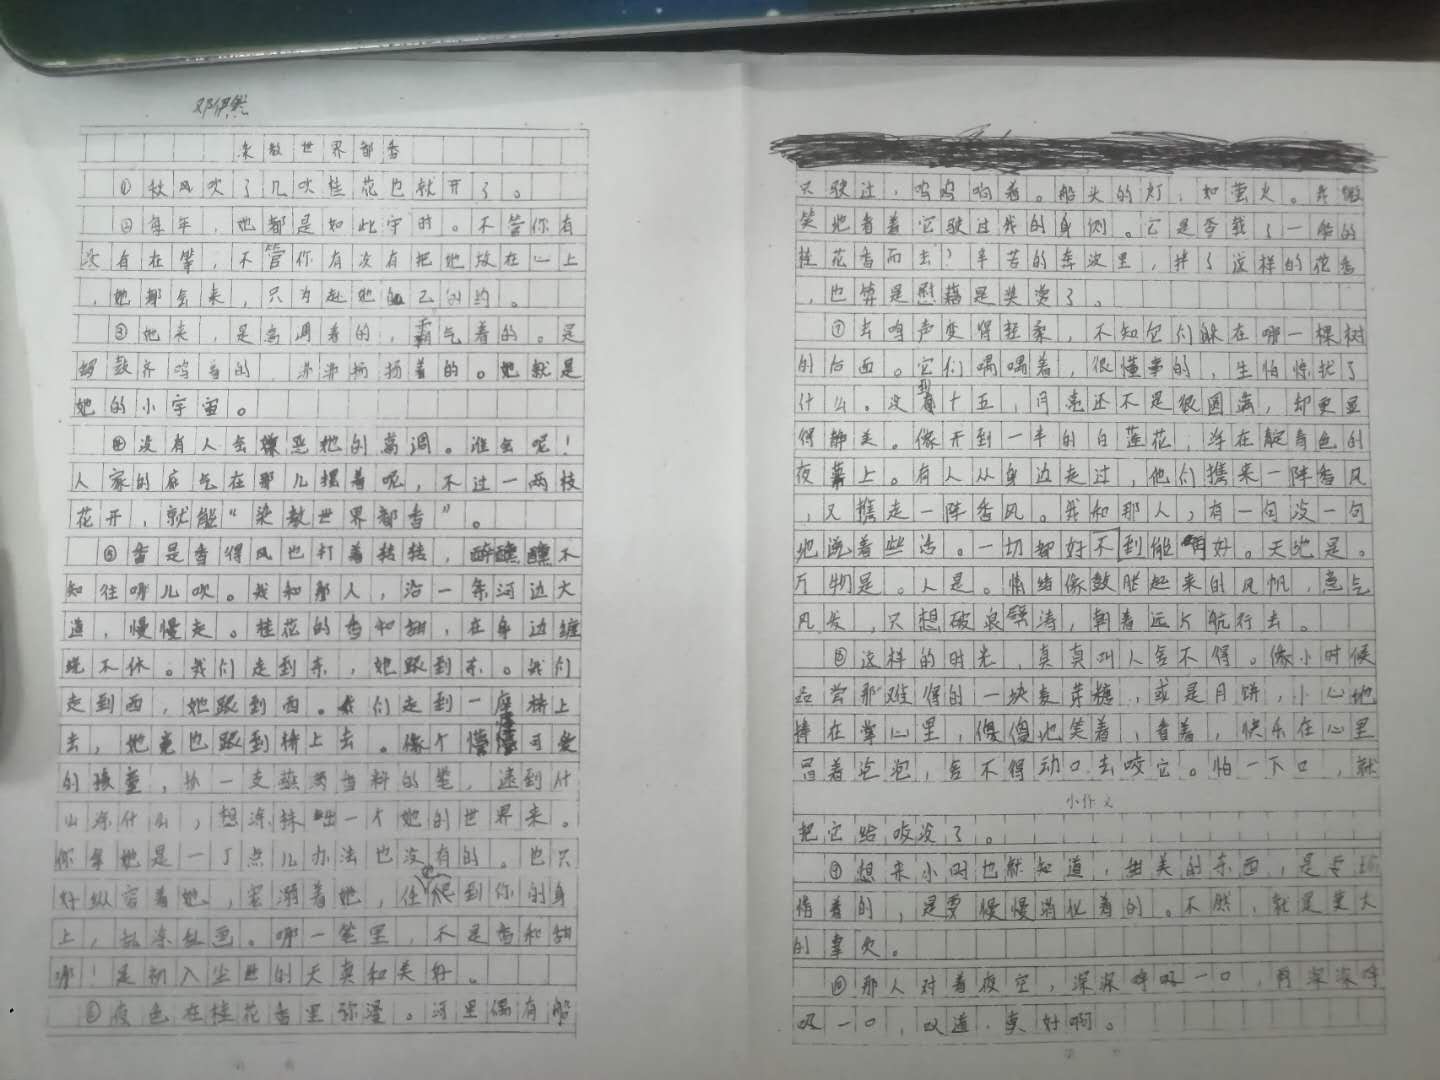 邓伊然
染教世界都香
①秋风吹了几吹桂花也就开了。
②每年,她都是如此守时。不管你有
没有在等,不管你有没有把她放在心上
,她都会来,只为赴她自己的约。
③她来,是高调着的,霸气着的。是
锣鼓齐鸣着的,沸沸扬扬着的。她就是
她的小宇宙。
④没有人会嫌恶她的高调。谁会呢!
人家的底气在那儿摆着呢,不过一两枝
花开,就能“染教世界都香”。
⑤香是香得风也打着转转,醉醺醺不
知往哪儿吹。我和那人,沿一条河边大
道,慢慢走。桂花的香和甜,在身边缠
绕不休。我们走到东,她跟到东。我们
走到西,她跟到西。我们走到一座桥上
去,她竟也跟到桥上去。像个懵懂可爱
的孩童,执一支蘸着香料的笔,逮到什
么涂什么,想涂抹出一个她的世界来。
你拿她是一丁点儿办法也没有的。也只
好纵容着她,宠溺着她,任她爬到你的身
上,乱涂乱画。哪一笔里,不是香和甜
哪!是初入尘世的天真和美好。
⑥夜色在桂花香里弥漫。河里偶有船
只驶过,呜呜响着。船头的灯,如萤火。我微
笑地看着它驶过我的身侧。它是否载了一船的
桂花香而去?辛苦的奔波里,拌了这样的花香
,也算是慰藉是奖赏了。
⑦虫鸣声变得轻柔,不知它们躲在哪一棵树
的后面。它们喁喁着,很懂事的,生怕惊扰了
什么。没到十五,月亮还不是很圆满,却更显
得静美。像开到一半的白莲花,浮在靛青色的
夜幕上。有人从身边走过,他们携来一阵香风
,又携走一阵香风。我和那人,有一句没一句
地说着些话。一切都好不到能再好。天地是。
万物是。人是。情绪像鼓胀起来的风帆,意气
风发,只想破浪劈涛,朝着远方航行去。
⑧这样的时光,真真叫人舍不得。像小时候
品尝那难得的一块麦芽糖,或是月饼,小心地
捧在掌心里,傻傻地笑着,看着,快乐在心里
冒着泡泡,舍不得动口去咬它。怕一下口,就
小作文
把它给吃没了。
⑨想来小时也就知道,甜美的东西,是要珍
惜着的,是要慢慢消化着的。不然,就是莫大
的辜负。
⑩那人对着夜空,深深呼吸一口,再深深呼
吸一口,叹道,真好啊。